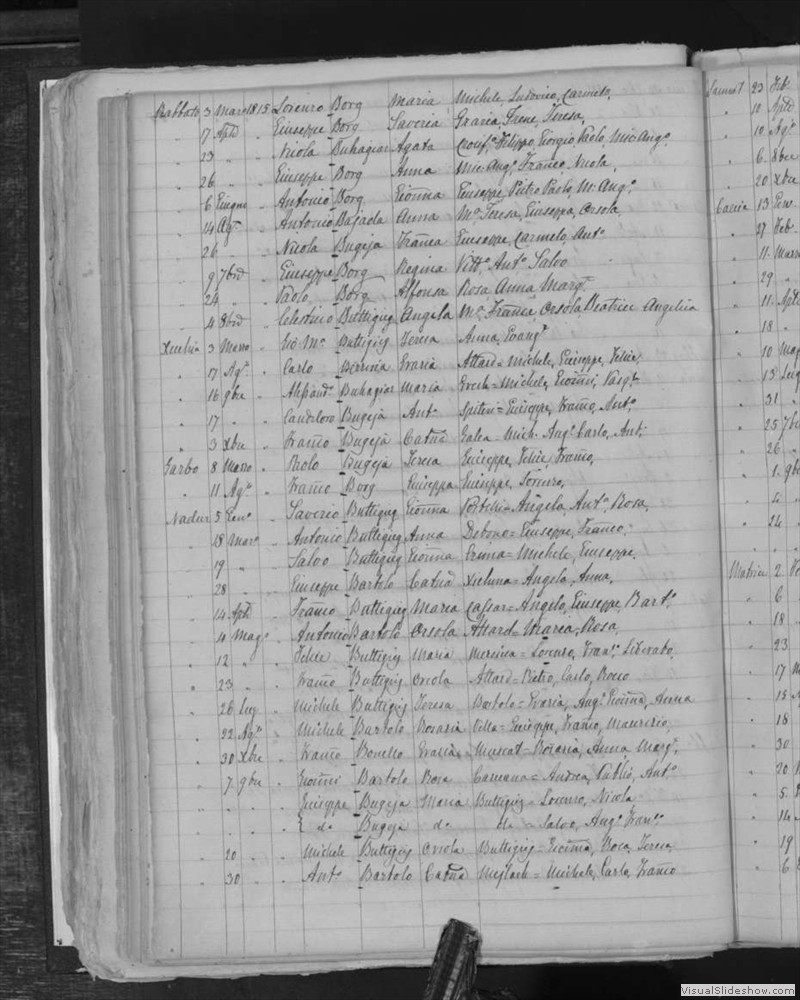 Rabbato 3 Marzo 1815 Lorenzo Borg Maria Michele, Ludovico, Carmelo,
7 Aple " Giuseppe Borg Saveria Grazia, Irene, Teresa,
23 " " Nicola Buhagiar Agata Filippo, Giorgio, Paolo, Mic Ango.
26 " " Giuseppe Borg Anna Mic: Ango. Franco, Nicola,
6 Giugno " Antonio Borg Gionna Giuseppe, Pietro Paolo, M: Ango.
14 Ago. " Antonio Bajada Anna Ma. Teresa, Giuseppa, Orsola,
26 " " Nicola Bugeja Franca Giuseppe, Carmelo, Anto.
9 7bre " Giuseppe Borg Regina Vitto. Anto. Salvo
24 " " Paolo Borg Alfonsa Rosa, Anna, Marga.
4 8bre " Celestino Buttigieg Angela Ma. Franca Orsola Beatrice Angelica
Xeuchia 3 Marzo " Gio: Ma. Buttigieg Teresa Anna, Evanga.
17 Ago. " Carlo Grazia Attard = Michele, Giuseppe, Felice,
16 9bre " Alessando. Buhagiar Maria Grech = Michele, Gionni, Pasqe.
17 " " Candeloro Bugeja Anta. Spiteri = Giuseppe, Franco, Anto.
3 Xbre " Franco Bugeja Catna Galea = Mich: Ango. Carlo, Ant:
Garbo 8 Marzo " Paolo Bugeja Teresa Giuseppe, Felice, Franco,
11 Ago. " Franco Borg Giuseppa Giuseppe, Lorenzo,
Nadur 5 Geno. " Saverio Buttigieg Gionna Portelli = Angelo, Anto. Rosa,
18 Marzo " Antonio Buttigieg Anna Debono = Giuseppe, Franco,
19 " " Salvo Buttigieg Gionna = Michele, Giuseppe,
28 " " Giuseppe Bartolo Catna Xicluna = Angelo, Anna,
14 Aple " Franco Buttigieg Maria Cassar = Angelo, Giuseppe, Barto.
4 Mago. " Antonio Bartolo Orsola Attard = Maria, Rosa,
12 " " Felice Buttigieg Maria Mercieca = Lorenzo, Franco. Liberato,
23 " " Franco Buttigieg Orsola Attard = Pietro, Carlo, Rocco
26 Lug " Michele Buttigieg Teresa Bartolo = Grazia, Ango. Gionna, Anna
22 Ago. " Michele Bartolo Rosaria Vella = Giuseppe, Franco, Maurizio,
30 Xbre " Franco Bonello Grazia Muscat = Rosaria, Anna Marga.
7 9bre " Gionni Bartolo Rosa Camena = Andrea, Publio, Anto.
" " " Giuseppe Bugeja Maria Buttigieg = Lorenzo, Nicola
" " " E do Bugeja do do = Salvo, Ango. Franco.
20 " " Michele Buttigieg Orsola Buttigieg = Gionna, Rosa, Teresa,
30 " " Anto. Bartolo Catna Mejlach = Michele, Carlo, Franco
Sannat 23 Feb
10 Aple
10 Ago.
6 8bre
20 Xbre
Caccia 13 Gen
27 Feb
11 Marzo
29 "
11 Aple
18 "
10 Mag
13 Lug
31 "
25 7bre
26 "
1 9bre
4 "
24 "
2
6
18
23
17
15
18
30
20
5
14
19
6
VisualSlideshow.com